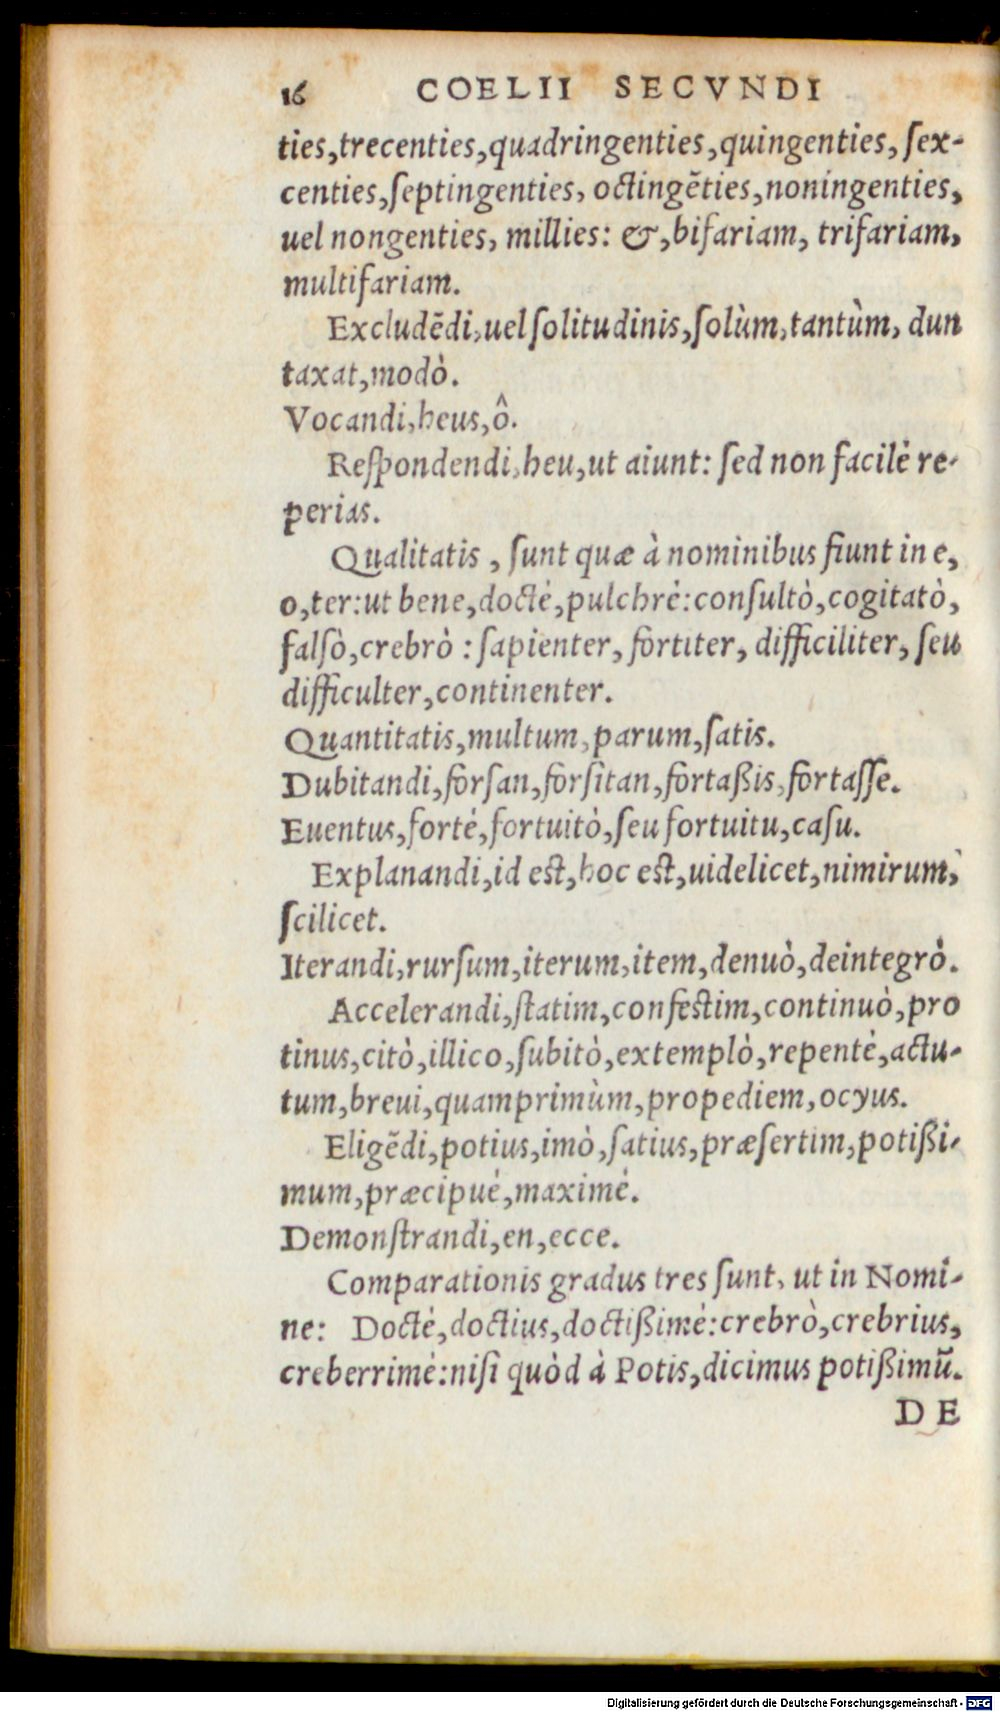 16 COELII SECVNDI
ties,trecenties,quadringenties,quingenties, ſex-
centies,ſeptingenties, octingẽties,noningenties,
uel nongenties, millies: &,bifariam, trifariam,
multifariam.
Excludẽdi,uel ſolitudinis,ſolùm,tantùm, dun
taxat,modò.
Vocandi,heus,ô.
Reſpondendi,heu,ut aiunt: ſed non facilè re-
perias.
Qualitatis, ſunt quæ à nominibus fiunt in e,
o,ter:ut bene,doctè,pulchrè:conſultò,cogitatò,
falſò,crebrò: ſapienter, fortiter, difficiliter, ſeu
difficulter,continenter.
Quantitatis,multum,parum,ſatis.
Dubitandi,forſan,forſitan,fortaßis,fortaſſe.
Euentus,fortè,fortuitò,ſeu fortuitu,caſu.
Explanandi,id est,hoc est,uidelicet,nimirum,
ſcilicet.
Iterandi,rurſum,iterum,item,denuò,deintegrò.
Accelerandi,ſtatim,confestim,continuò,pro
tinus,citò,illico,ſubitò,extemplò,repentè,actu-
tum,breui,quamprimùm,propediem,ocyus.
Eligẽdi,potius,imò,ſatius,præſertim,potißi-
mum,præcipuè,maximè.
Demonſtrandi,en,ecce.
Comparationis gradus tres ſunt, ut in Nomi-
ne: Doctè,doctius,doctißimè:crebrò,crebrius,
creberrimè:niſi quòd à Potis,dicimus potißimũ.
DE
Digitalisierung gefördert durch die Deutsche Forschungsgemeinschaft - DFG